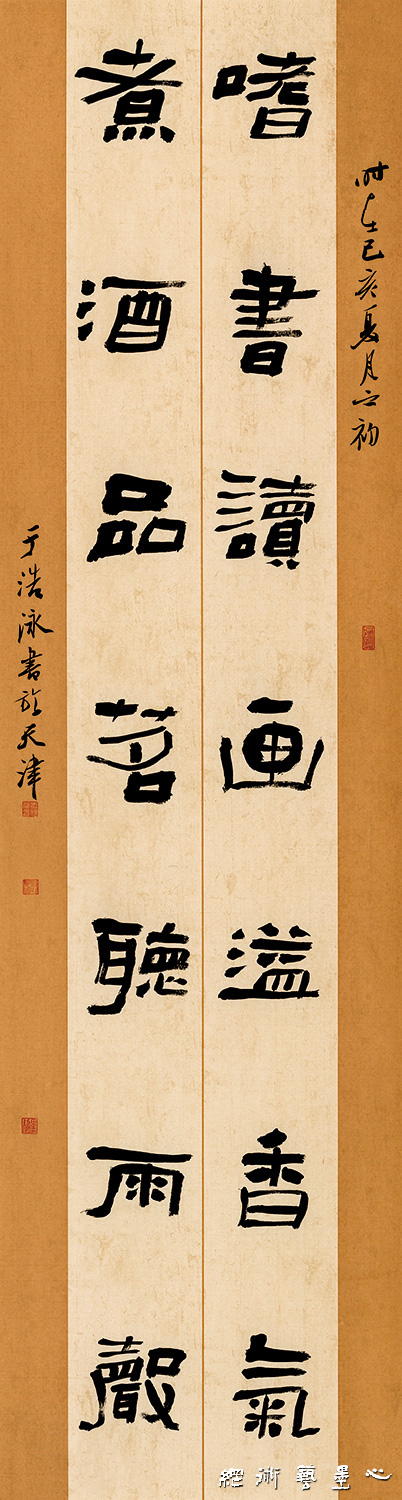 时在己亥夏月之初
嗜書讀画溢香氣
煮酒品茗聽雨聲
于浩泳書於天津
心墨藝術經